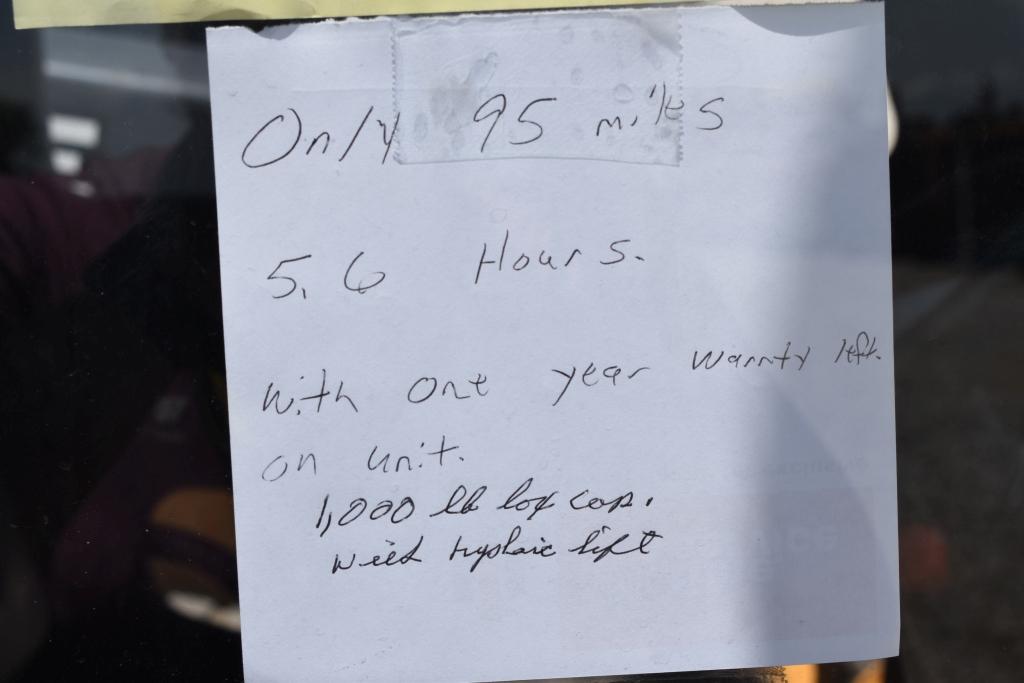 Only 95 miles
5.6 Hours.
With one year warnty left.
on unit.
1,000 lb box cap.
with lift